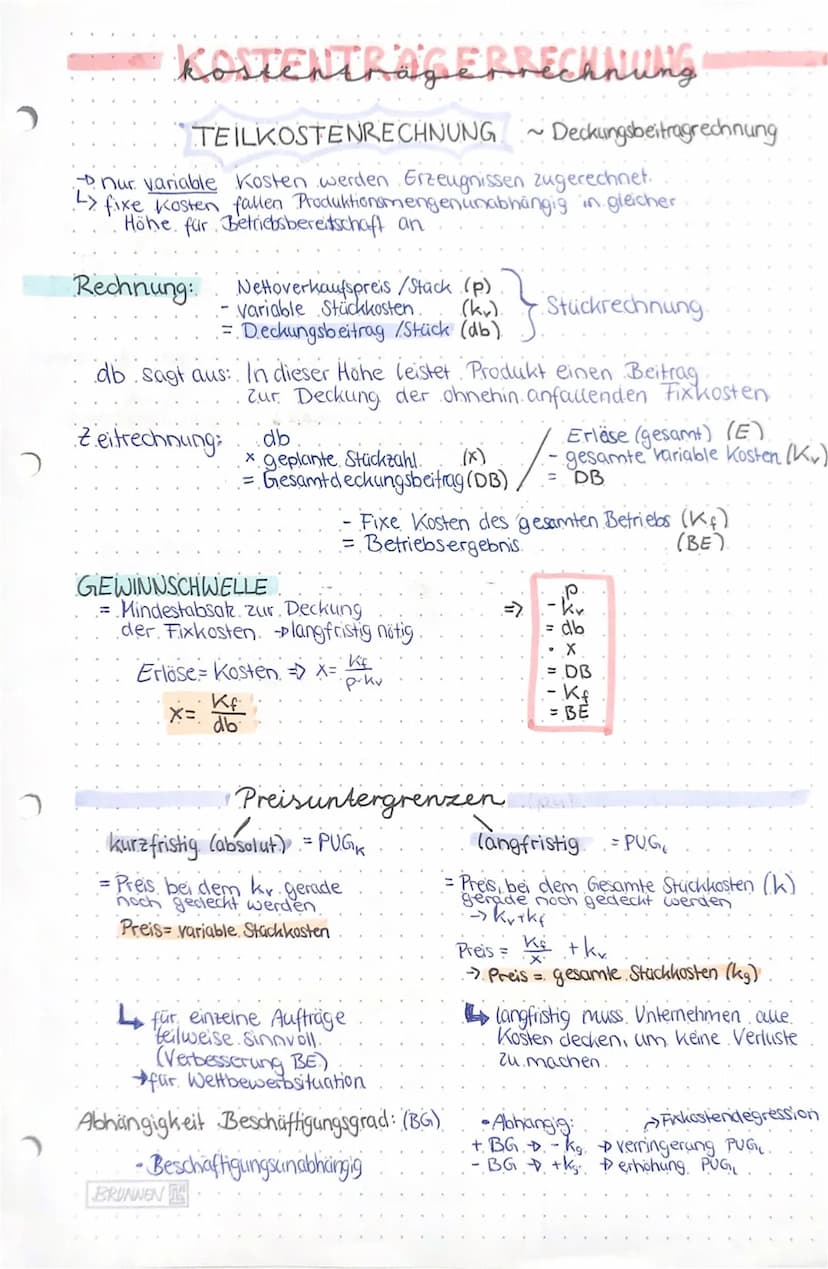 KOSTENTRÄGERRECHNUNG
kostenträgerrechnung
TEILKOSTENRECHNUNG ~ Deckungsbeitragrechnung
→ nur variable Kosten werden Erzeugnissen zugerechnet.
↳ fixe Kosten fallen Produktionsmengenunabhängig in gleicher
Höhe für Betriebsbereitschaft an
Rechnung: Nettoverkaufspreis /Stück (p)
- variable Stückkosten (kv)
= Deckungsbeitrag /Stück (db)
} Stückrechnung
db sagt aus: In dieser Höhe leistet Produkt einen Beitrag
zur Deckung der ohnehin anfallenden Fixkosten
Zeitrechnung: db
x geplante Stückzahl (x)
= Gesamtdeckungsbeitrag (DB)
/ Erlöse (gesamt) (E)
- gesamte variable Kosten (Kv)
= DB
- Fixe Kosten des gesamten Betriebs (Kf)
= Betriebsergebnis (BE)
GEWINNSCHWELLE
= Mindestabsatz zur Deckung
der Fixkosten → langfristig nötig
Erlöse = Kosten ⇒ x = Kf / p-kv
x = Kf / db
⇒
p
- kv
= db
· x
= DB
- Kf
= BE
Preisuntergrenzen
kurzfristig (absolut) = PUGK
= Preis bei dem kv gerade
noch gedeckt werden
Preis = variable Stückkosten
↳ für einzelne Aufträge
teilweise sinnvoll
(Verbesserung BE)
→ für Wettbewerbsituation
langfristig = PUGL
= Preis, bei dem Gesamte Stückkosten (k)
gerade noch gedeckt werden
→ kv+kf
Preis = Kf / x + kv
→ Preis = gesamte Stückkosten (kg)
↳ langfristig muss Unternehmen alle
Kosten decken, um keine Verluste
zu machen
Abhängigkeit Beschäftigungsgrad: (BG)
• Beschäftigungsunabhängig
• Abhängig: → Fixkostendegression
+ BG → - kg → verringerung PUGL
- BG → + kg → erhöhung PUGL
BRUNNEN